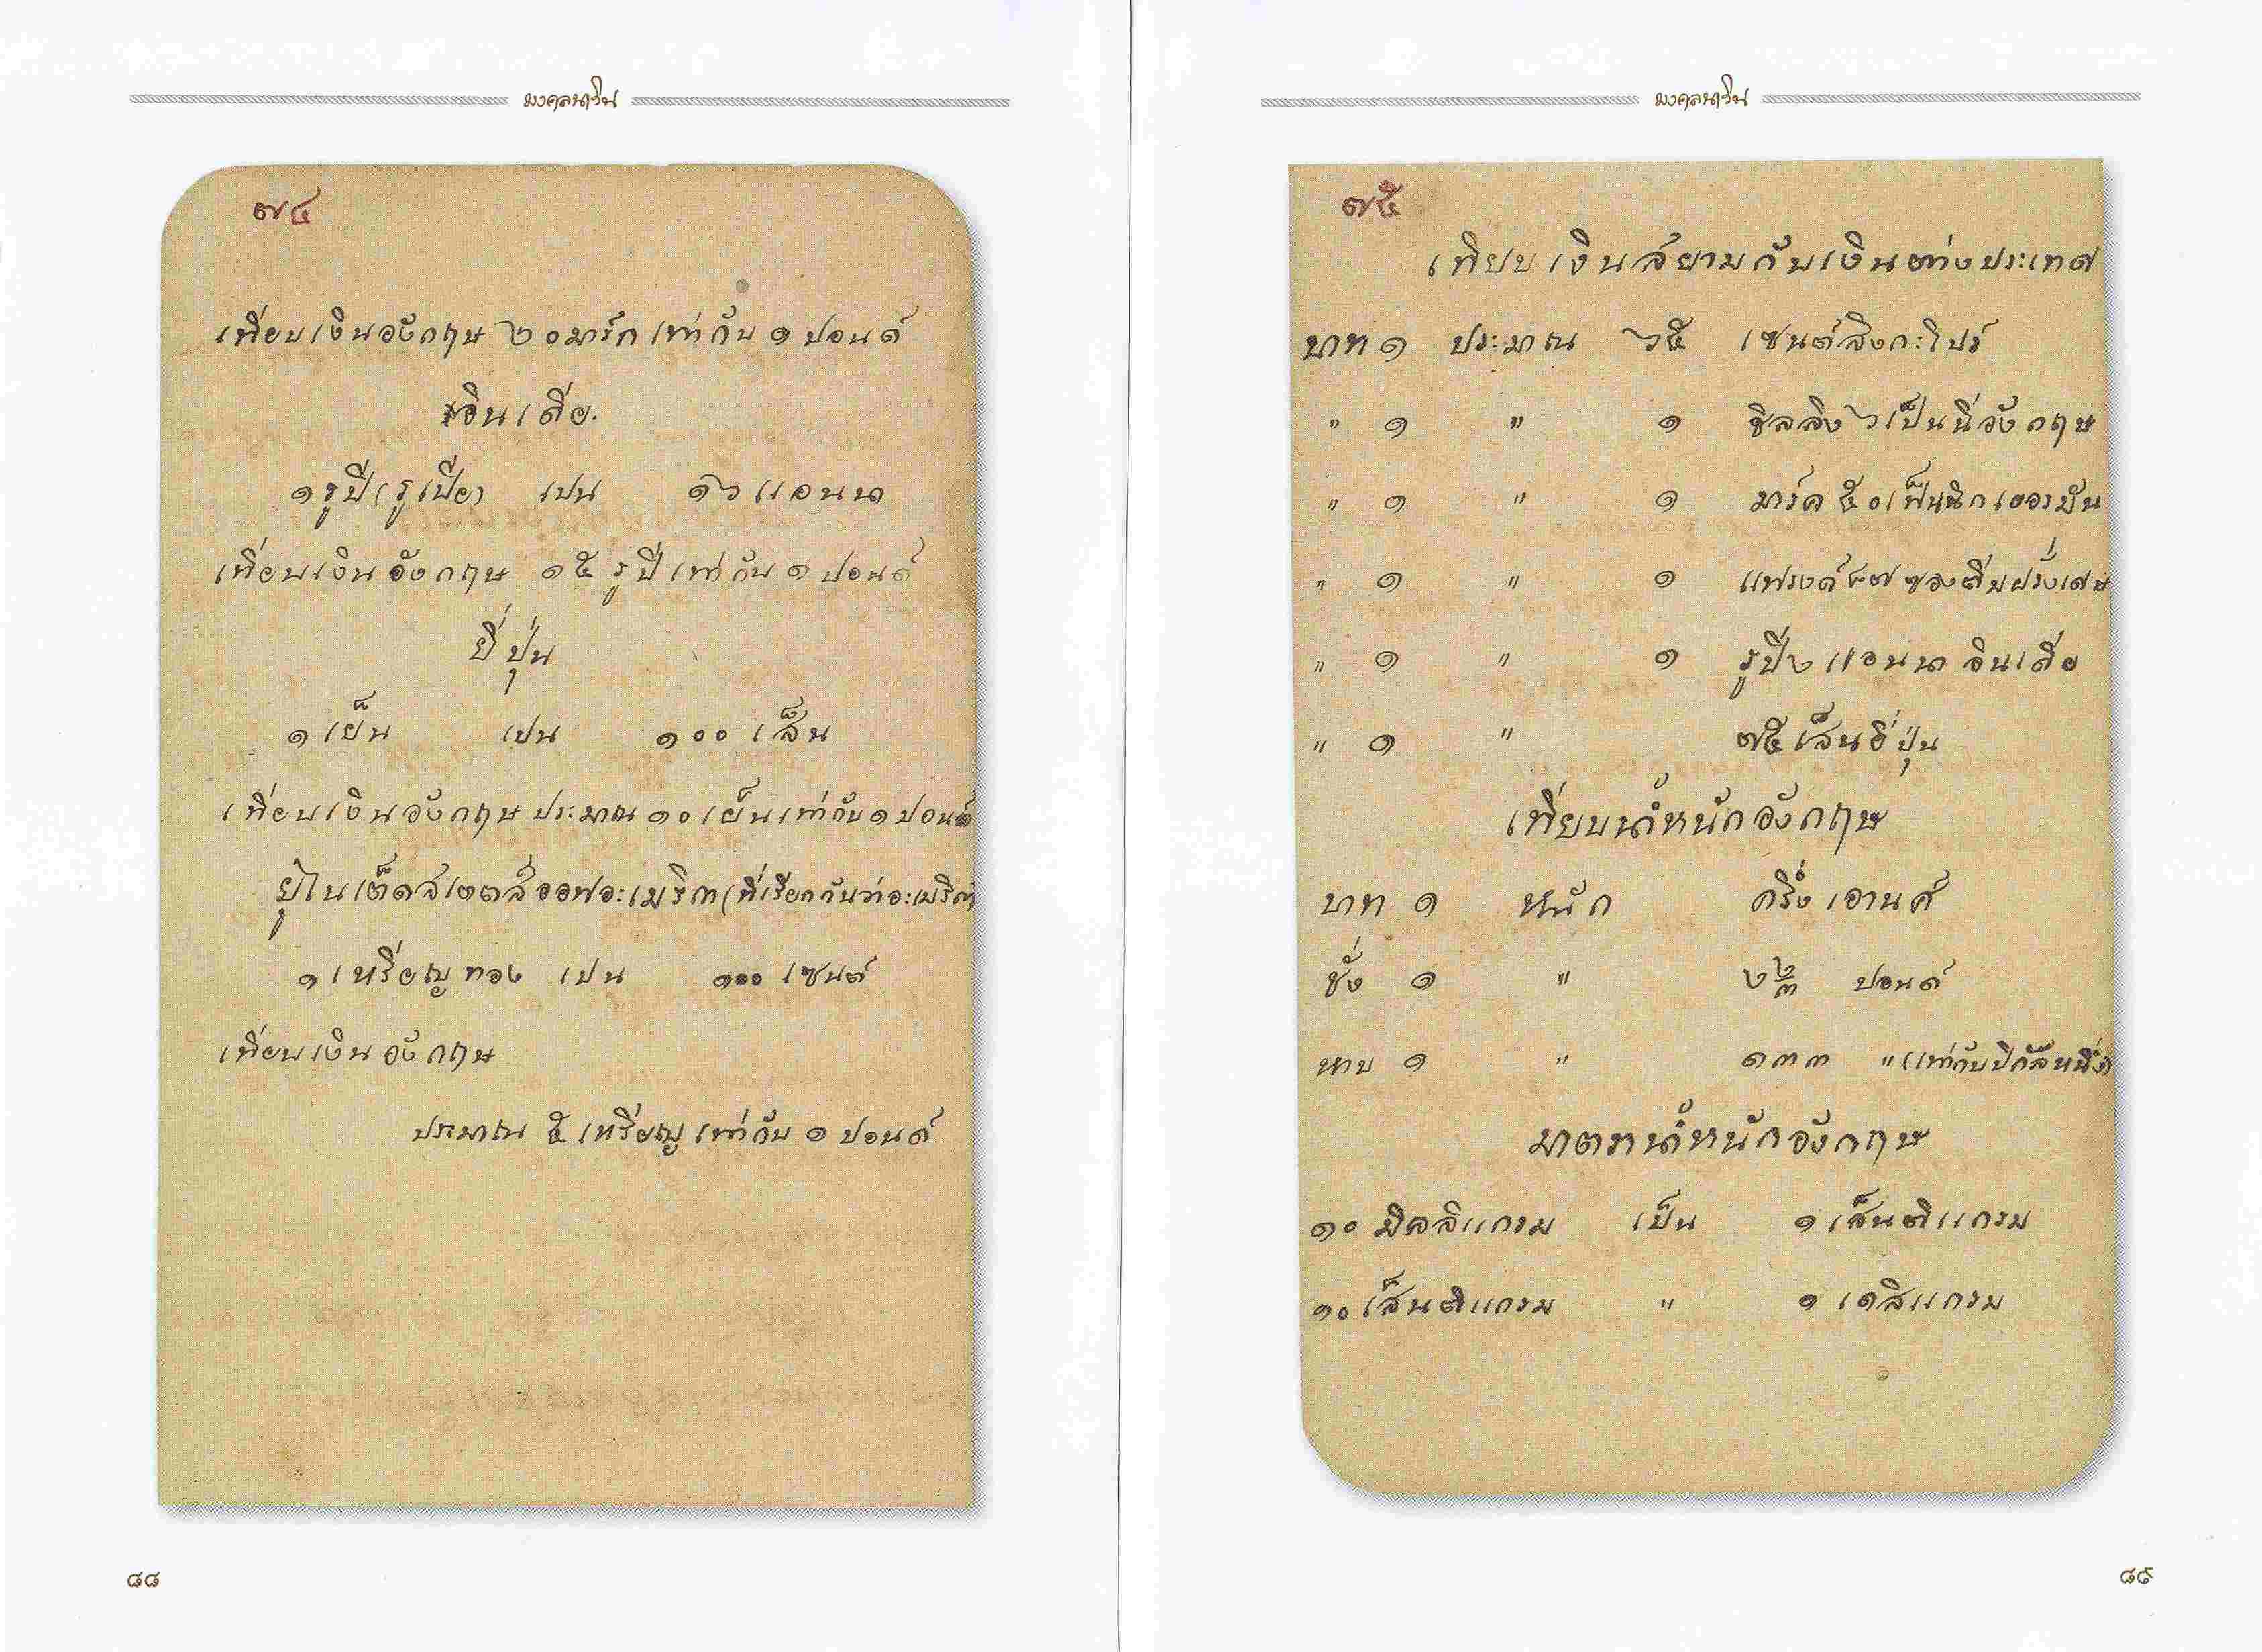 มงคลนาวิน
๗๔
เทียบเงินอังกฤษ ๒๐ มาร์ก เท่ากับ ๑ ปอนด์
อินเดีย.
๑ รูปี (รูเปีย) เปน ๑๖ แอนนา
เทียบเงินอังกฤษ ๑๕ รูปี เท่ากับ ๑ ปอนด์
ยี่ปุ่น
๑ เย็น เปน ๑๐๐ เส็น
เทียบเงินอังกฤษ ประมาณ ๑๐ เย็น เท่ากับ ๑ ปอนด์
ยูไนเต็ดสเตตส์ออฟอะเมริกา (ที่เรียกกันว่าอะเมริกา
๑ เหรียญทอง เปน ๑๐๐ เซนต์
เทียบเงินอังกฤษ
ประมาณ ๕ เหรียญ เท่ากับ ๑ ปอนด์
๘๘
มงคลนาวิน
๗๕
เทียบเงินสยามกับเงินต่างประเทศ
บาท ๑ ประมาณ ๖๕ เซนต์สิงกะโปร์
" ๑ " ๑ ชิลลิง ๖ เป็นนี่อังกฤษ
" ๑ " ๑ มาร์ค ๕๐ เฟ็นนิกเยอรมัน
" ๑ " ๑ แฟรงค์ ๘๗ ซองตีมฝรั่งเศษ
" ๑ " ๑ รูปี ๒ แอนนา อินเดีย
" ๑ " ๗๕ เส็นยี่ปุ่น
เทียบน้ำหนักอังกฤษ
บาท ๑ หนัก ครึ่ง เอานศ์
ชั่ง ๑ " ๒ ๒/๓ ปอนด์
หาบ ๑ " ๑๓๓ " (เท่ากับปิกัลหนึ่ง)
มาตราน้ำหนักอังกฤษ
๑๐ มิลลิแกรม เป็น ๑ เส็นติแกรม
๑๐ เส็นติแกรม " ๑ เดสิแกรม
๘๙